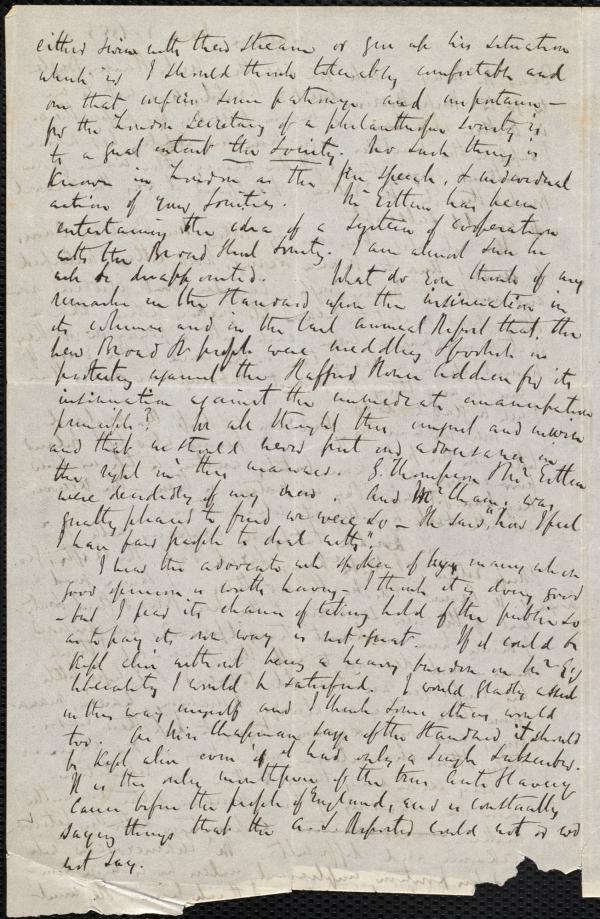 either swim with their stream or give up his situation
which is I should think tolerably comfortable and
one that confers some patronage and importance —
for the London Secretary of a philanthropic Society is
to a great extent the Society. No such thing is
known in London as the free speech, & individual
action of your Societies. Mr Estlin has been
entertaining the idea of a system of cooperation
with the Broad Street Society. I am almost sure he
will be disappointed. What do you think of my
remarks in the Standard upon the insinuation in
its columns and in the last annual Report that the
new Broad St people were meddling Spoolish in
protesting against the Stafford House address for its
insinuation against the immediate emancipation
principle? We all thought this unjust and unwise
and that we should never put our adversaries in
the right in this manner. G. Thompson & Mr Estlin
were decidedly of my view. And Mr Cham. was
greatly pleased to find we were so — He said, "now I feel
I have fair people to deal with".
I hear the advocate well spoken of by many whose
good opinion is worth having — I think it is doing good
— but I fear its chance of taking hold of the public so
as to pay its own way is not great. If it could be
kept alive without being a heavy burden on Mr E's
liberality I would be satisfied. I would gladly assist
in this way myself and I think some others would
too. As Mrs Chapman says of the Standard it should
be kept alive even if it had only a single subscriber.
It is the only mouthpiece of the true Anti Slavery
cause before the people of England, and is constantly
saying things that the A. S. Reporter could not or would
not say.